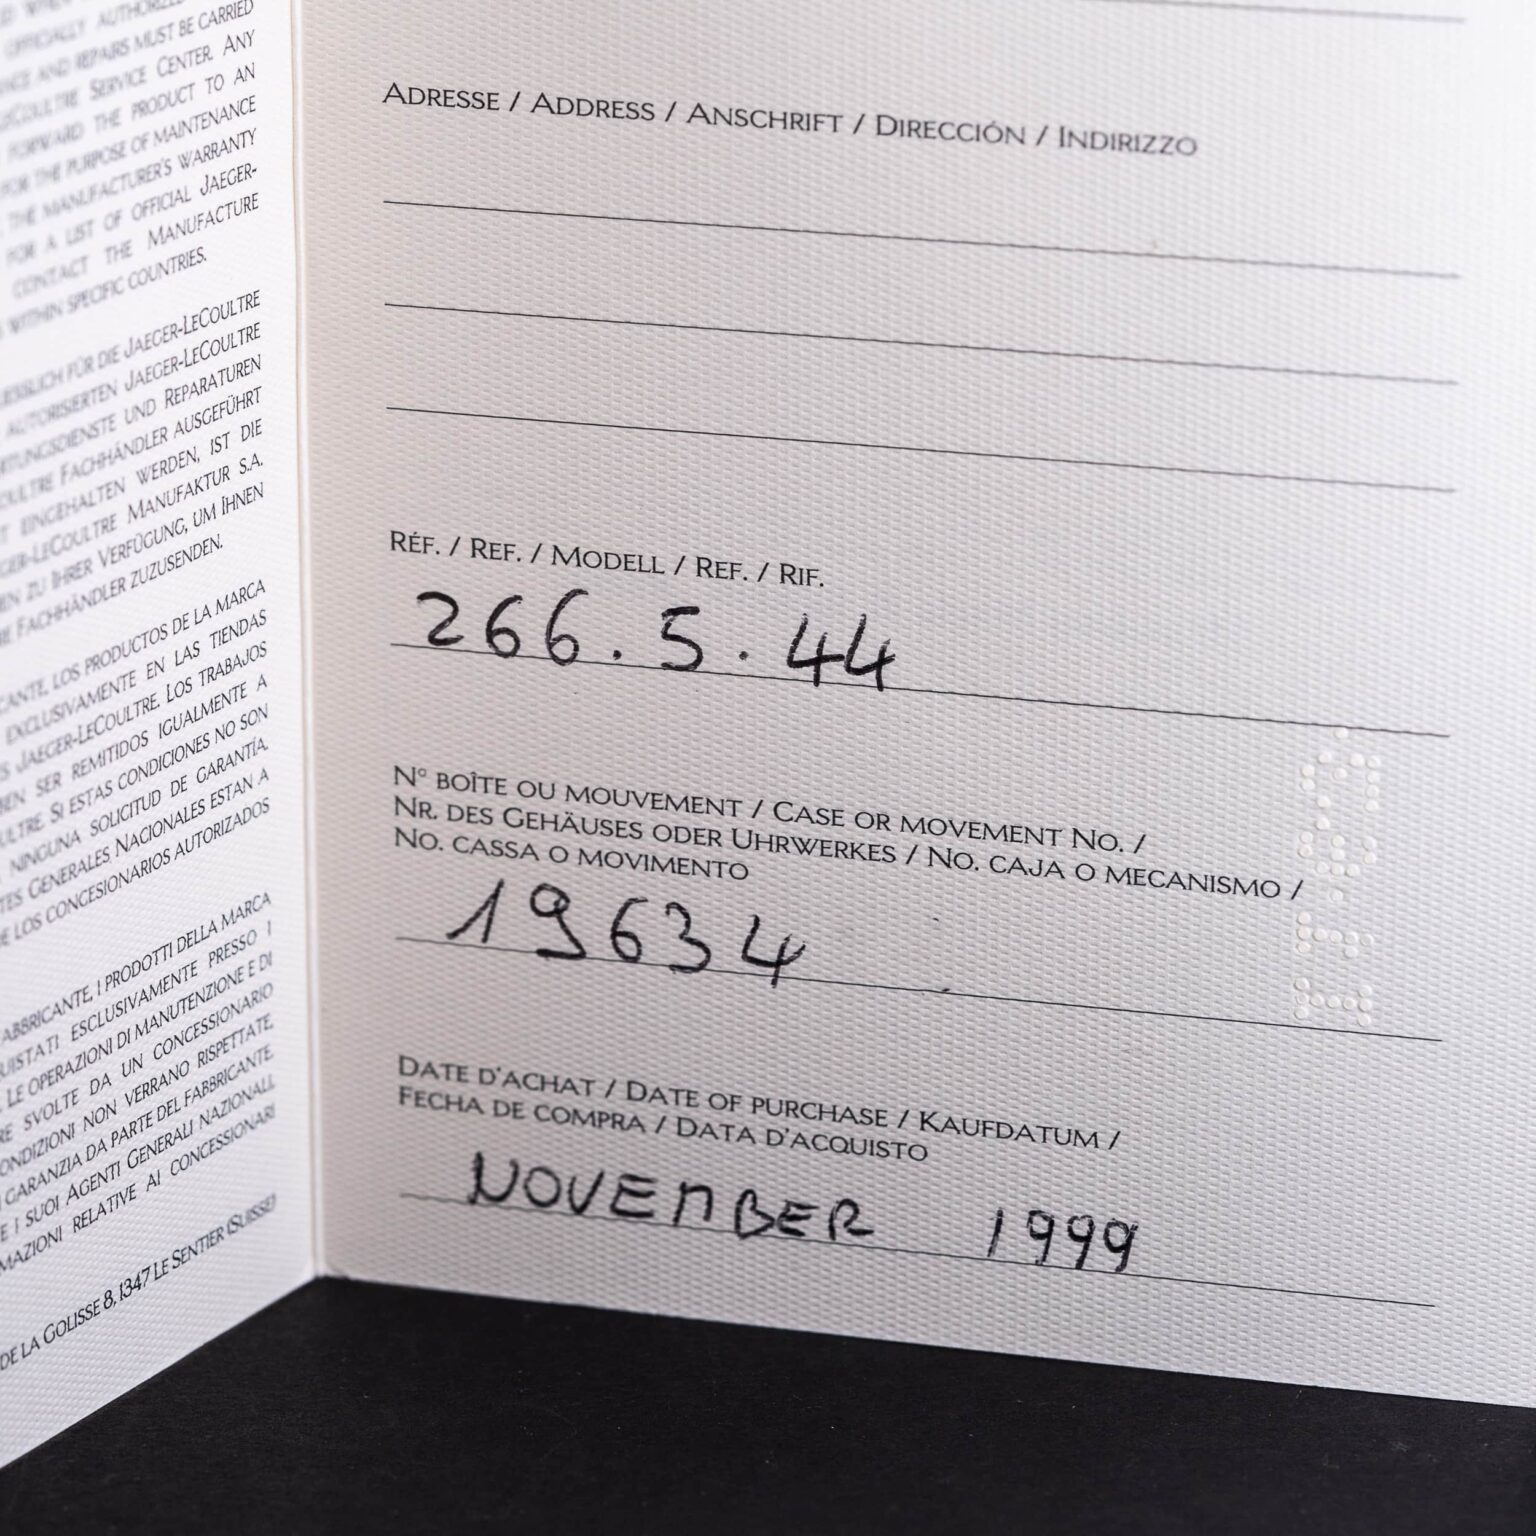 OFFICIALLY AUTHORIZED
AND REPAIRS MUST BE CARRIED
LECOULTRE SERVICE CENTER. ANY
FORWARD THE PRODUCT TO AN
FOR THE PURPOSE OF MAINTENANCE
THE MANUFACTURER'S WARRANTY
FOR A LIST OF OFFICIAL JAEGER-
CONTACT THE MANUFACTURE
WITHIN SPECIFIC COUNTRIES.
FÜR DIE JAEGER-LECOULTRE
AUTORISIERTEN JAEGER-LECOULTRE
UND REPARATUREN
FACHHÄNDLER AUSGEFÜHRT
EINGEHALTEN WERDEN, IST DIE
JAEGER-LECOULTRE MANUFAKTUR S.A.
ZU IHRER VERFÜGUNG, UM IHNEN
FACHHÄNDLER ZUZUSENDEN.
LOS PRODUCTOS DE LA MARCA
EXCLUSIVAMENTE EN LAS TIENDAS
JAEGER-LECOULTRE. LOS TRABAJOS
SER REMITIDOS IGUALMENTE A
SI ESTAS CONDICIONES NO SON
NINGUNA SOLICITUD DE GARANTÍA.
GENERALES NACIONALES ESTAN A
DE LOS CONCESIONARIOS AUTORIZADOS
FABBRICANTE, I PRODOTTI DELLA MARCA
ESCLUSIVAMENTE PRESSO I
LE OPERAZIONI DI MANUTENZIONE E DI
SVOLTE DA UN CONCESSIONARIO
CONDIZIONI NON VERRANO RISPETTATE,
GARANZIA DA PARTE DEL FABBRICANTE.
E I SUOI AGENTI GENERALI NAZIONALI
RELATIVE AI CONCESSIONARI
DE LA GOLISSE 8, 1347 LE SENTIER (SUISSE)
ADRESSE / ADDRESS / ANSCHRIFT / DIRECCIÓN / INDIRIZZO
RÉF. / REF. / MODELL / REF. / RIF.
266.5.44
N° BOÎTE OU MOUVEMENT / CASE OR MOVEMENT NO. /
NR. DES GEHÄUSES ODER UHRWERKES / NO. CAJA O MECANISMO /
NO. CASSA O MOVIMENTO
19634
DATE D'ACHAT / DATE OF PURCHASE / KAUFDATUM /
FECHA DE COMPRA / DATA D'ACQUISTO
NOVEMBER 1999